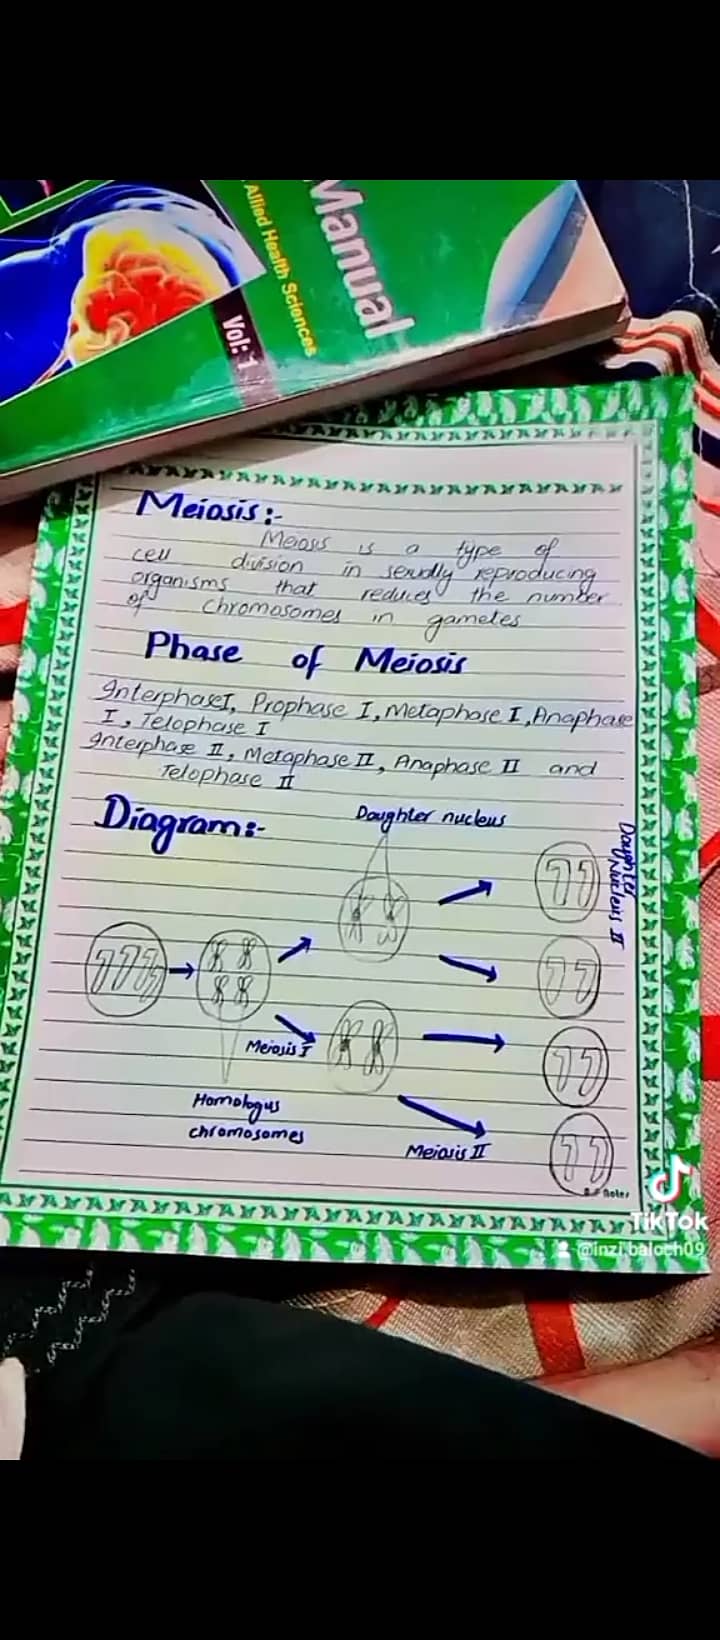 Manual
Allied Health Sciences
Vol: 1
Meiosis:-
Meiosis is a type of
cell division in sexually reproducing
organisms that reduces the number
of chromosomes in gametes
Phase of Meiosis
Interphase I, Prophase I, Metaphase I, Anaphase
I, Telophase I
Interphase II, Metaphase II, Anaphase II and
Telophase II
Diagram:-
Daughter nucleus
Daughter
Nucleus II
Meiosis I
Homologus
chromosomes
Meiosis II
Notes
TikTok
@inzi.baloch09